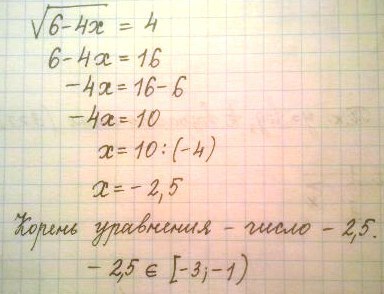 √(6-4x) = 4
6-4x = 16
-4x = 16-6
-4x = 10
x = 10 : (-4)
x = -2,5
Корень уравнения - число - 2,5.
- 2,5 ∈ [-3;-1)